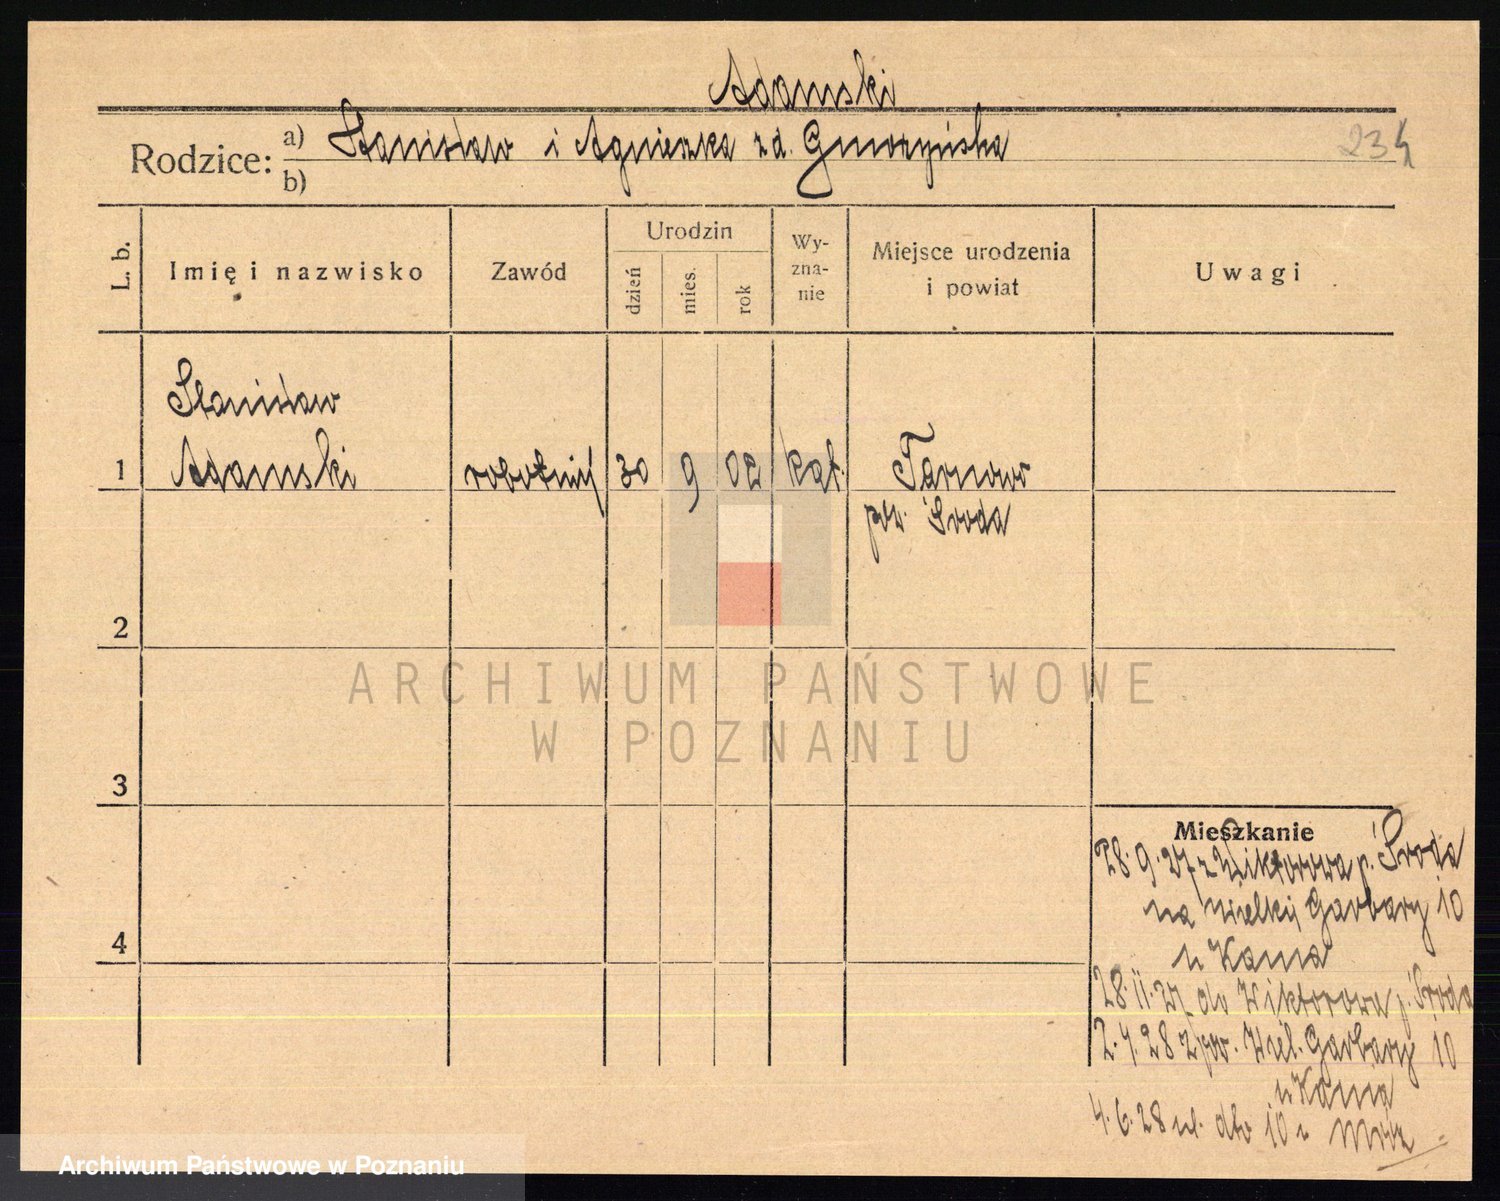 Adamski
Rodzice: a) Stanisław i Agnieszka zd. Gmorzyńska
b)
234
L. b.
Imię i nazwisko
Zawód
Urodzin
dzień
mies.
rok
Wy-
zna-
nie
Miejsce urodzenia
i powiat
Uwagi
Stanisław
1 Adamski robotnik 30 9 02 kat. Tarnowo
pow. Środa
2
ARCHIWUM PAŃSTWOWE
W POZNANIU
3
Mieszkanie
28.9.27 z Wiktorowa p. Środa
na Wielkij Garbary 10
4
u Kania
28.11.27 do Wiktorowa p. Środa
2.4.28 zpow. Wiel. Garbary 10
u Kania
4.6.28 ul. 10
Archiwum Państwowe w Poznaniu